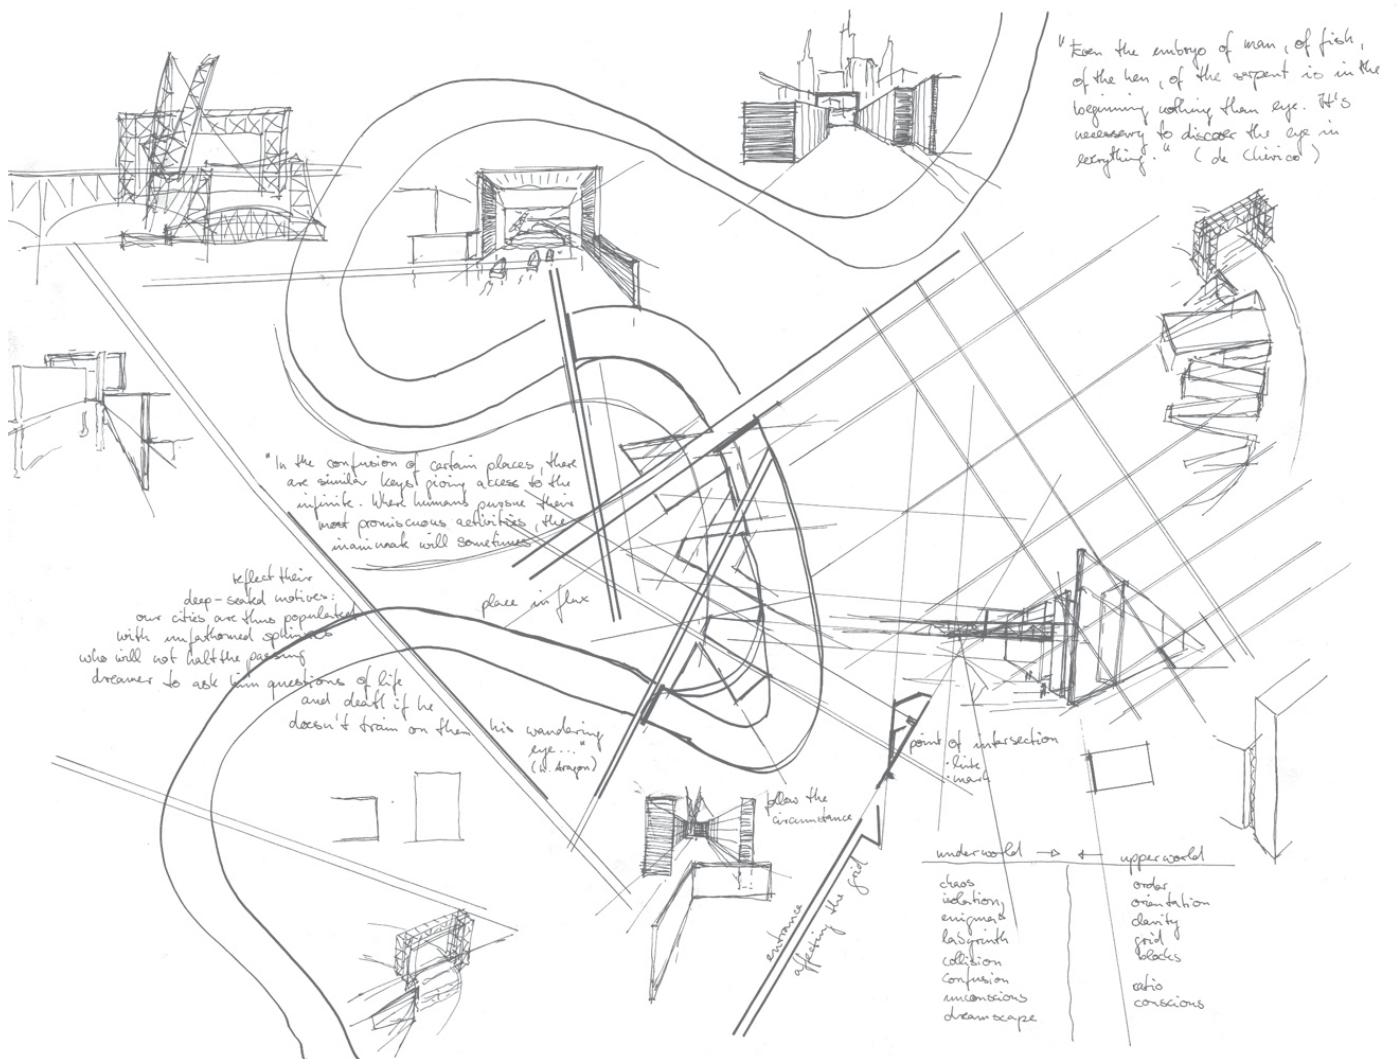 "Even the embryo of man, of fish,
of the hen, of the serpent is in the
beginning nothing than eye. It's
necessary to discover the eye in
everything." (de Chirico)
"In the confusion of certain places, there
are similar keys giving access to the
infinite. Where humans pursue their
most promiscuous activities, the
inanimate will sometimes
reflect their
deep-seated motives:
our cities are thus populated
with unfathomed sphinxes
who will not halt the passing
dreamer to ask him questions of life
and death if he
doesn't train on them his wandering
eye..."
(L. Aragon)
place in flux
point of intersection
· link
· mark
follow the
circumstance
entrance
affecting the grid
underworld → ← upperworld
chaos
isolation
enigma
labyrinth
collision
confusion
unconscious
dreamscape
order
orientation
clarity
grid
blocks
ratio
conscious